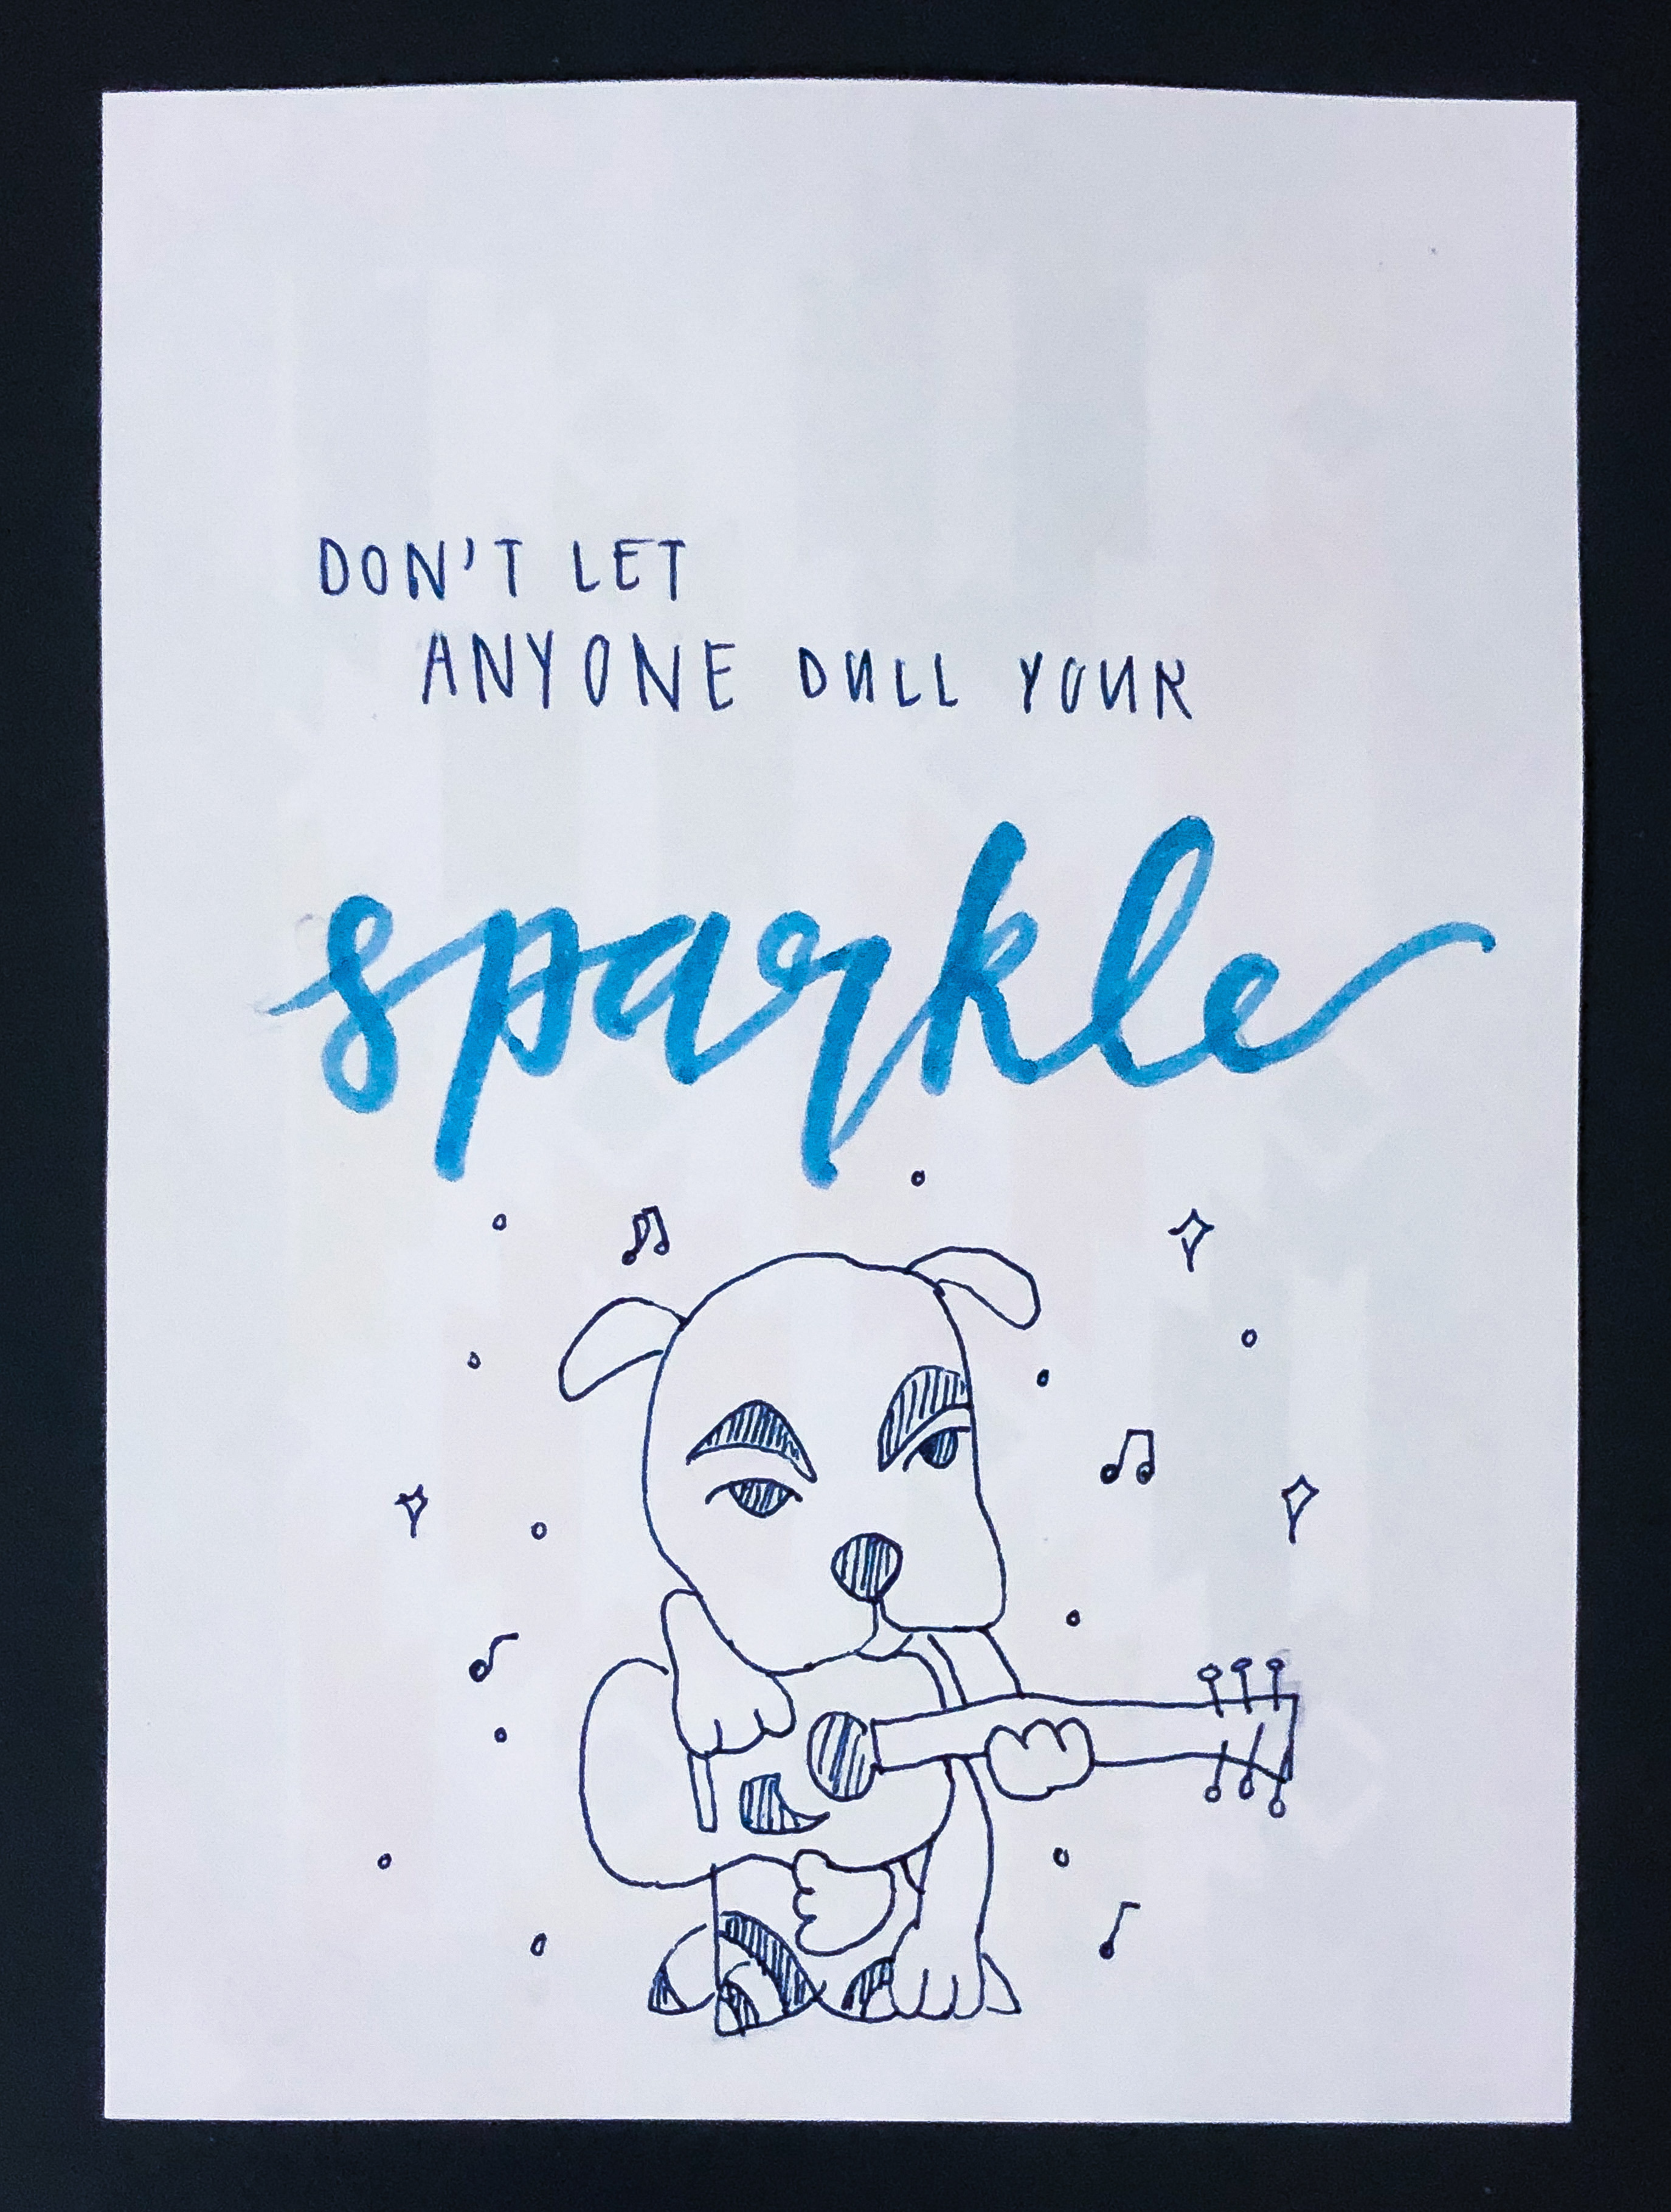 DON'T LET
ANYONE DULL YOUR
sparkle